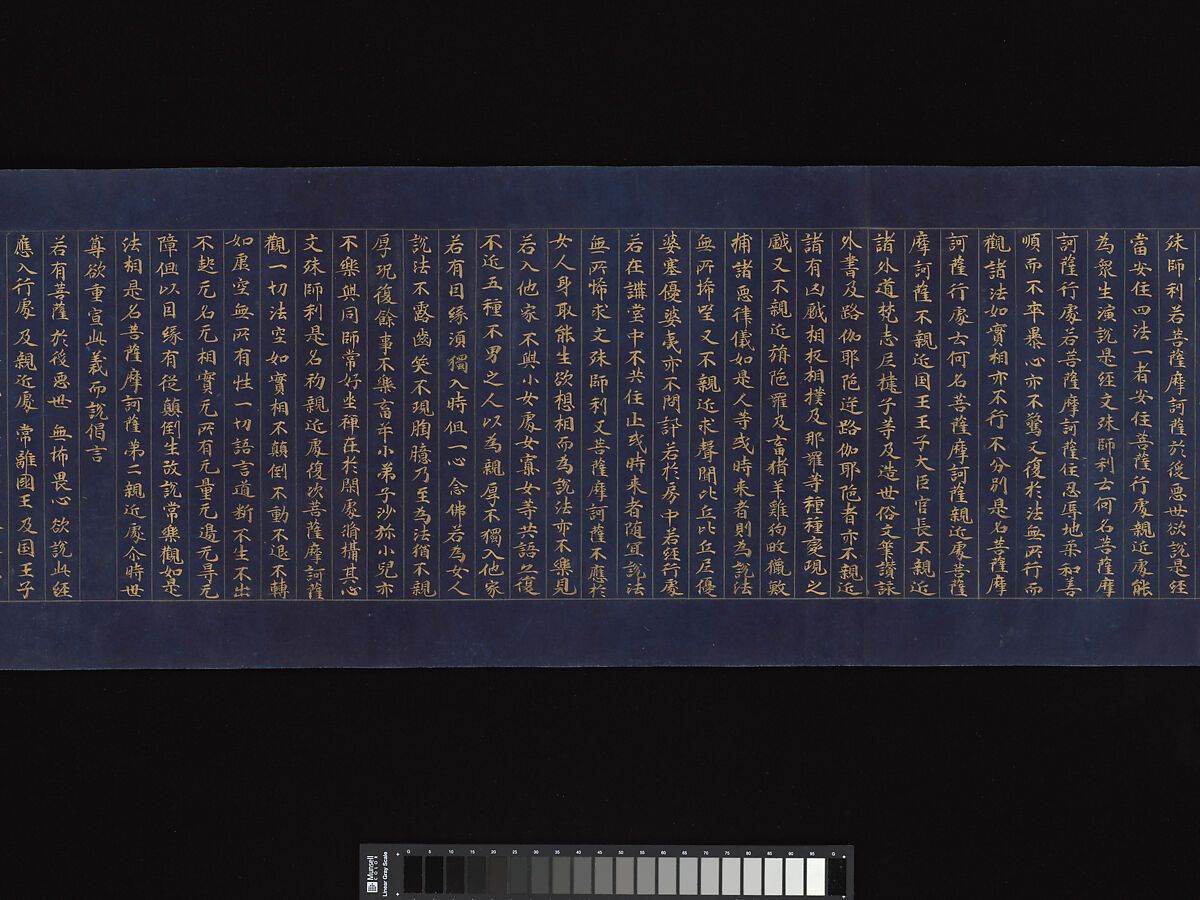 殊師利若菩薩摩訶薩於後悪世欲說是経
當安住四法一者安住菩薩行處親近處能
為衆生演說是経文殊師利云何名菩薩摩
訶薩行處若菩薩摩訶薩住忍辱地柔和善
順而不卒暴心亦不驚又復於法無所行而
觀諸法如實相亦不行不分別是名菩薩摩
訶薩行處云何名菩薩摩訶薩親近處菩薩
摩訶薩不親近国王王子大臣官長不親近
諸外道梵志尼揵子等及造世俗文筆讃詠
外書及路伽耶陁逆路伽耶陁者亦不親近
諸有凶戯相扠相撲及那羅等種種變現之
戯又不親近旃陁羅及畜猪羊雞狗畋獵
捕諸悪律儀如是人等或時来者則為說法
無所悕望又不親近求聲聞比丘比丘尼優
婆塞優婆夷亦不問訊若於房中若経行處
若在講堂中不共住止或時来者随宜說法
無所悕求文殊師利又菩薩摩訶薩不應於
女人身取能生欲想相而為說法亦不樂見
若入他家不與小女處女寡女等共語亦復
不近五種不男之人以為親厚不獨入他家
若有因縁湏獨入時但一心念佛若為女人
說法不露齒笑不現胸臆乃至為法猶不親
厚況復餘事不樂畜年小弟子沙弥小兒亦
不樂與同師常好坐禅在於閑處脩攝其心
文殊師利是名初親近處復次菩薩摩訶薩
觀一切法空如實相不顛倒不動不退不轉
如虗空無所有性一切語言道断不生不出
不起无名无相實无所有无量无邊无㝵无
障但以因縁有從顛倒生故說常樂觀如是
法相是名菩薩摩訶薩第二親近處尒時世
尊欲重宣此義而說偈言
若有菩薩 於後悪世 無怖畏心 欲說此経
應入行處 及親近處 常離國王 及国王子
Munsell COLOR
Linear Gray Scale
G 5 10 15 20 25 30 35 40 45 50 55 60 65 70 75 80 85 90 95 G